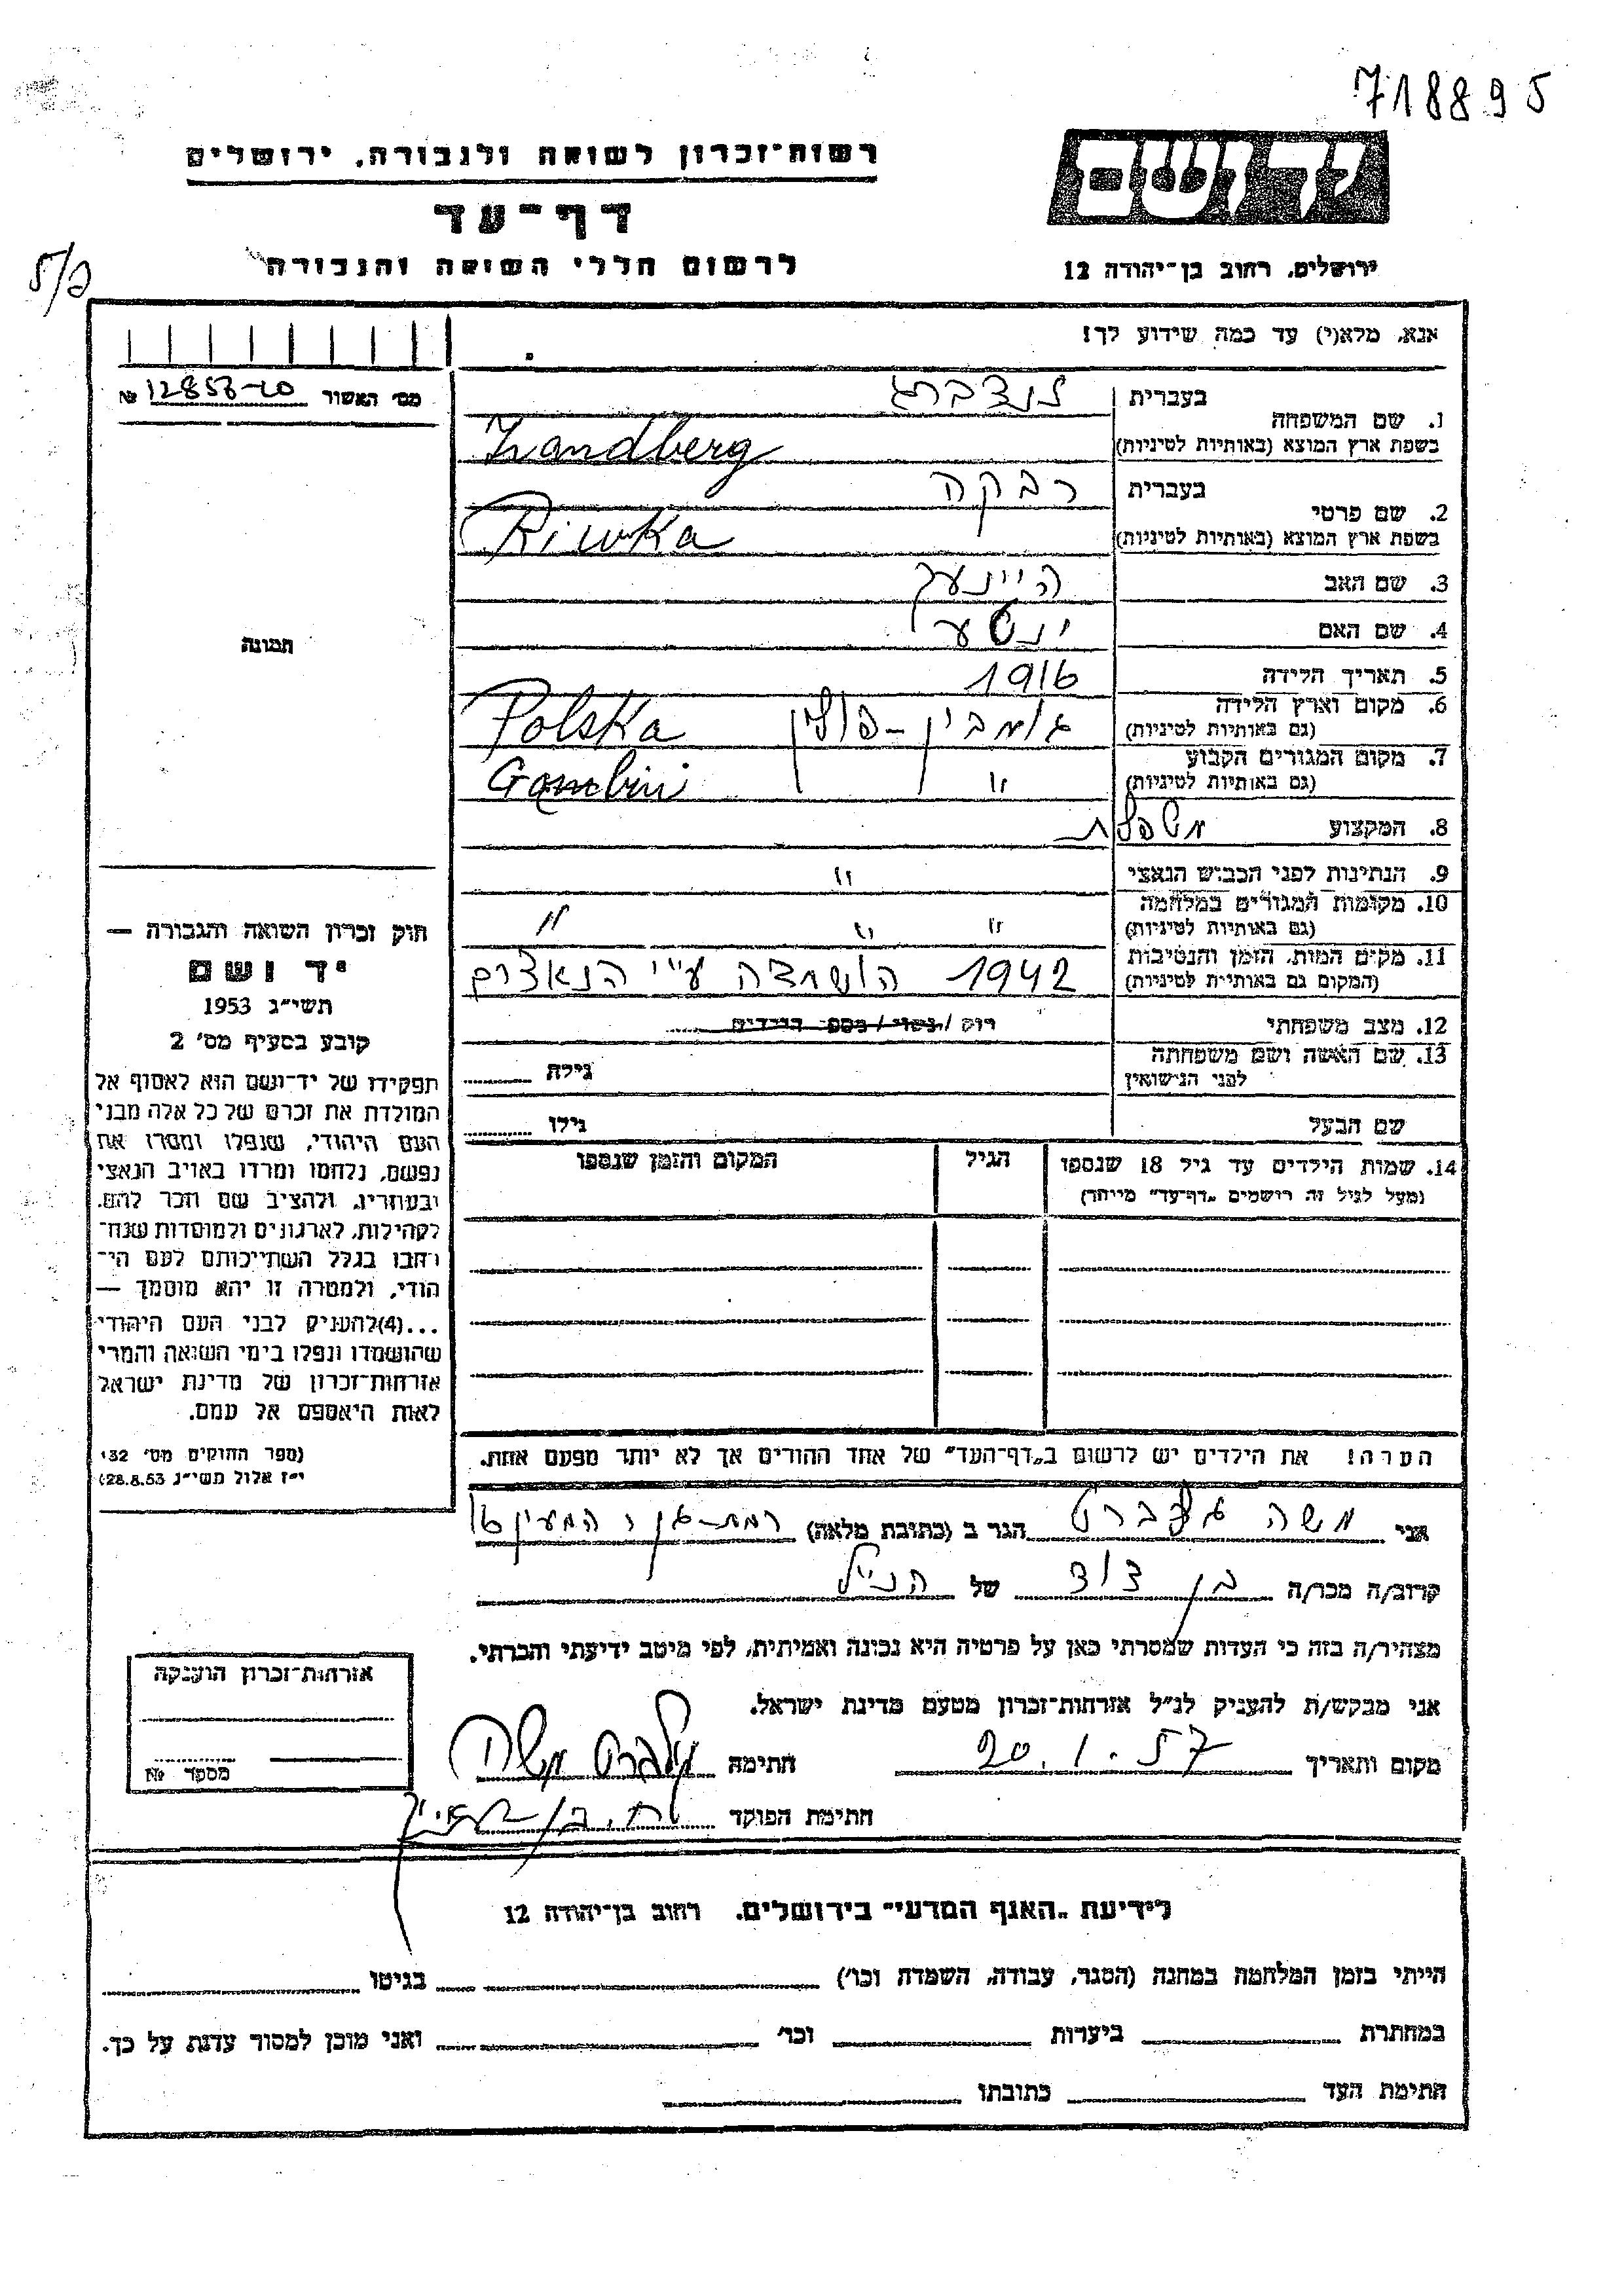 718895
רשות־זכרון לשואה ולגבורה, ירושלים
יד ושם
דף־עד
לרשום חללי השואה והגבורה
ירושלים, רחוב בן־יהודה 12
אנא, מלא(י) עד כמה שידוע לך!
מס׳ האשור
1. שם המשפחה
בעברית לנדברג
בשפת ארץ המוצא (באותיות לטיניות) Landberg
2. שם פרטי
בעברית רבקה
בשפת ארץ המוצא (באותיות לטיניות) Riwka
3. שם האב היינעך
4. שם האם
5. תאריך הלידה 1916
6. מקום וארץ הלידה גומבין - פולין Polska
(גם באותיות לטיניות)
7. מקום המגורים הקבוע " Gombin
(גם באותיות לטיניות)
8. המקצוע
9. הנתינות לפני הכבוש הנאצי "
10. מקומות המגורים במלחמה " " "
(גם באותיות לטיניות)
11. מקום המות, הזמן והנסיבות 1942 הושמדה ע"י הנאצים
(המקום גם באותיות לטיניות)
12. מצב משפחתי רוק / נשוי / מספר הילדים
13. שם האשה ושם משפחתה
לפני הנישואין
גילה
שם הבעל
גילו
14. שמות הילדים עד גיל 18 שנספו
(מעל לגיל זה רושמים "דף־עד" מיוחד)
הגיל
המקום והזמן שנספו
הערה! את הילדים יש לרשום ב"דף־העד" של אחד ההורים אך לא יותר מפעם אחת.
תמונה
חוק זכרון השואה והגבורה —
יד ושם
תשי״ג 1953
קובע בסעיף מס׳ 2
תפקידו של יד־ושם הוא לאסוף אל
המולדת את זכרם של כל אלה מבני
העם היהודי, שנפלו ומסרו את
נפשם, נלחמו ומרדו באויב הנאצי
ובעוזריו, ולהציב שם וזכר להם,
לקהילות, לארגונים ולמוסדות שנח־
רבו בגלל השתייכותם לעם הי־
הודי, ולמטרה זו יהא מוסמך —
...(4)להעניק לבני העם היהודי
שהושמדו ונפלו בימי השואה והמרי
אזרחות־זכרון של מדינת ישראל
לאות היאספם אל עמם.
(ספר החוקים מס׳ 132
י״ז אלול תשי״ג 28.8.53)
אני משה הגר ב (כתובת מלאה) רמת-גן
קרוב/ה מכר/ה בן דוד של הנ"ל
מצהיר/ה בזה כי העדות שמסרתי כאן על פרטיה היא נכונה ואמיתית, לפי מיטב ידיעתי והכרתי.
אני מבקש/ת להעניק לנ"ל אזרחות־זכרון מטעם מדינת ישראל.
מקום ותאריך 20.1.57 חתימה
חתימת הפוקד
אזרחות־זכרון הוענקה
מספר №
לידיעת "האגף המדעי" בירושלים, רחוב בן־יהודה 12
הייתי בזמן המלחמה במחנה (הסגר, עבודה, השמדה וכו׳) בגיטו
במחתרת ביערות וכו׳ ואני מוכן למסור עדות על כך.
חתימת העד כתובתו